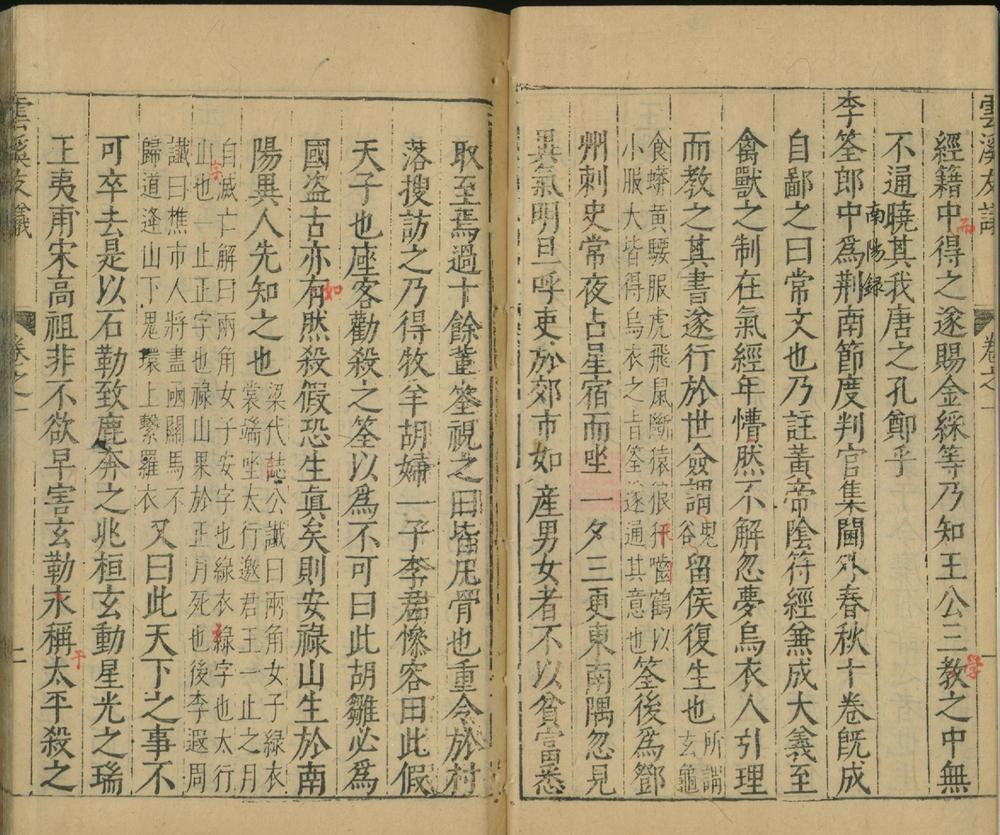 雲溪友議 卷之一
經籍中得之遂賜金綵等乃知王公三教之中無
不通曉其我唐之孔鄭乎
南陽録
李筌郎中為荆南節度判官集閫外春秋十卷旣成
自鄙之曰常文也乃註黃帝陰符經兼成大義至
禽獸之制在氣經年懵然不解忽夢烏衣人引理
而教之其書遂行於世僉謂鬼谷留侯復生也
所謂玄龜
食蟒黃腰服虎飛鼠斷猿狼犴嚙鶴以
小服大皆得烏衣之旨筌遂通其意也
筌後為鄧
州刺史常夜占星宿而坐一夕三更東南隅忽見
異氣明旦呼吏於郊市如產男女者不以貧富悉
取至焉過十餘輩筌視之曰皆凡骨也重令於村
落搜訪之乃得牧羊胡婦一子李君慘容曰此假
天子也座客勸殺之筌以為不可曰此胡雛必為
國盜古亦有然殺假恐生真矣則安祿山生於南
陽異人先知之也
梁代誌公讖曰兩角女子綠衣
裳端坐太行邀君王一止之月
自滅亡解曰兩角女子安字也綠衣綠字也太行
山也一止正字也祿山果於正月死也後李遐周
讖曰樵市人將盡函關馬不
歸道逢山下鬼環上繫羅衣
又曰此天下之事不
可卒去是以石勒致鹿奔之兆桓玄動星光之瑞
王夷甫宋高祖非不欲早害玄勒永稱太平殺之
雲溪友議 卷之一 二